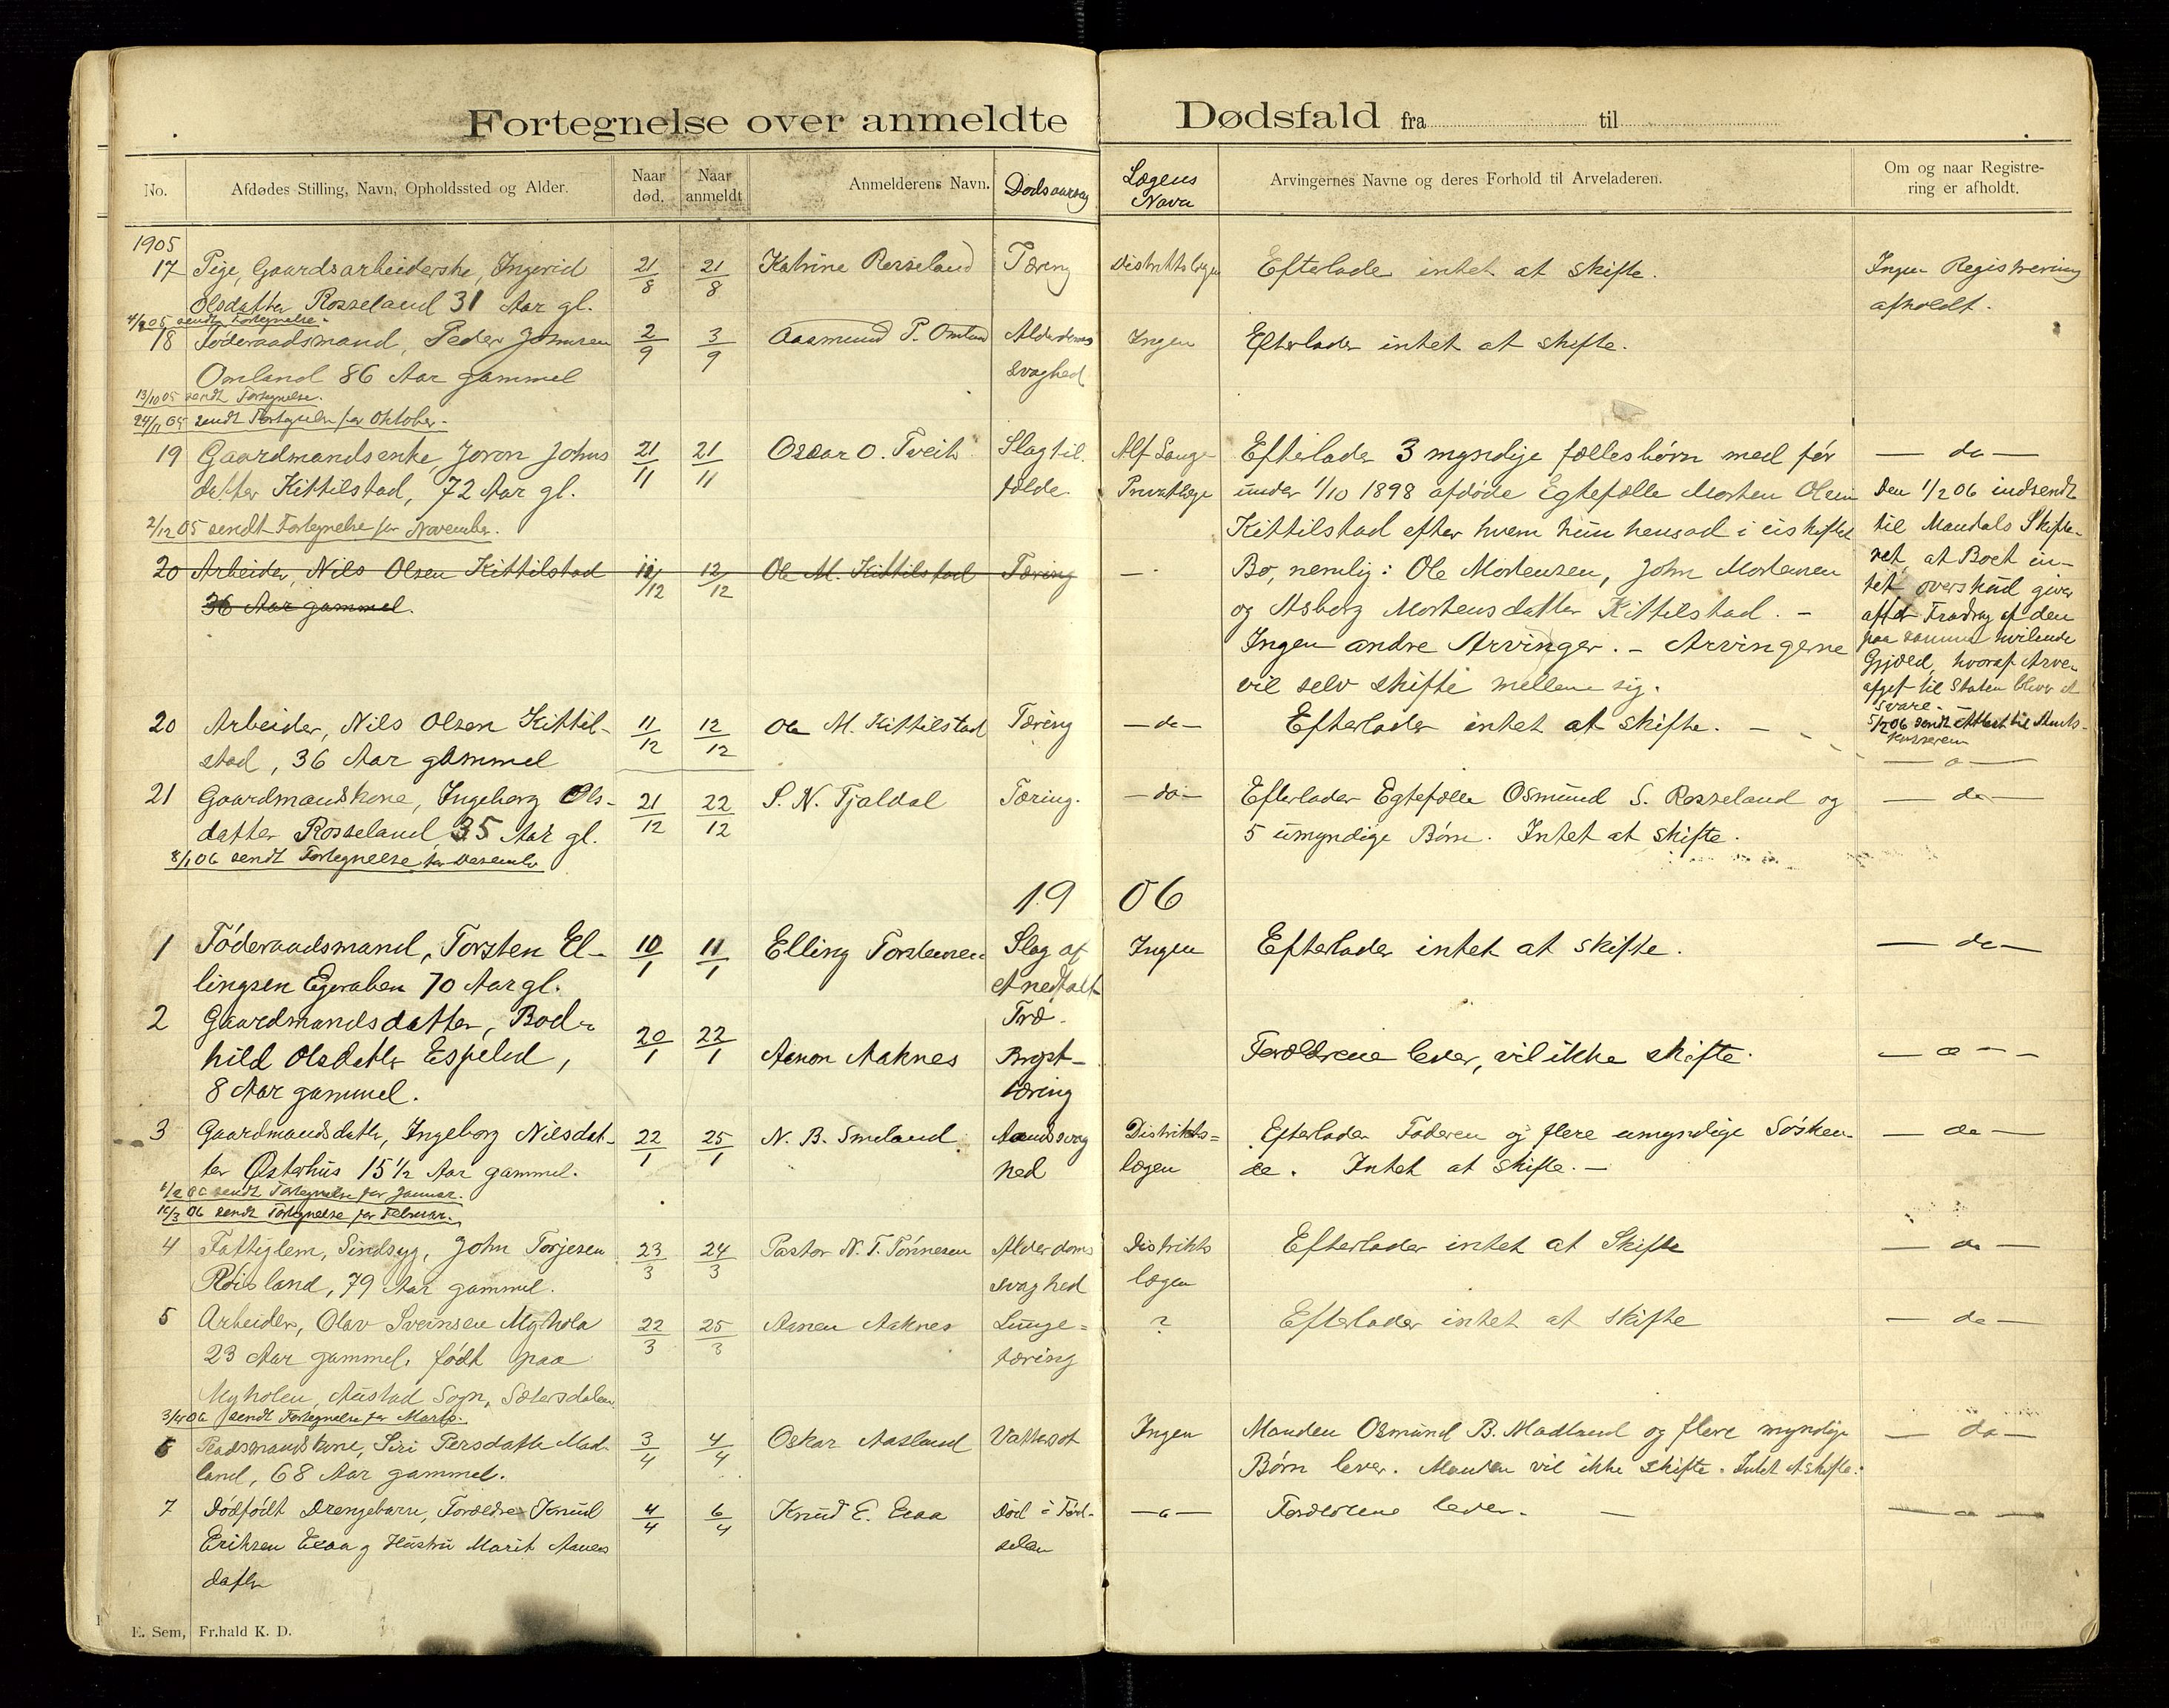 Fortegnelse over anmeldte Dødsfald fra til
No. Afdødes Stilling, Navn, Opholdssted og Alder. Naar død. Naar anmeldt Anmelderens Navn. Dødsaarsag Lægens Navn Arvingernes Navne og deres Forhold til Arveladeren. Om og naar Registrering er afholdt.
1905
17 Pige, Gaardsarbeiderske, Ingerid 21/8 21/8 Katrine Rosseland Tæring Distriktslægen Efterlader intet at skifte. Ingen Registrering
Olsdatter Rosseland 31 Aar gl. afholdt.
4/9 05 sendt Fortegnelse.
18 Føderaadsmand, Peder Jomsen 2/9 3/9 Aasmund P. Omland Alderdoms Ingen Efterlader intet at skifte.
Omland 86 Aar gammel svaghed
13/10 05 sendt Fortegnelse.
24/11 05 sendt Fortegnelse for Oktober.
19 Gaardmandsenke Joron Johns 21/11 21/11 Oscar O. Tveit Slagtil Alf Lange Efterlader 3 myndige fællesbørn med før — do —
datter Kittilstad, 72 Aar gl. fælde Privatlæge under 1/10 1898 afdøde Egtefælle Morten Olsen Den 1/2 06 indsendt
2/12 05 sendt Fortegnelse for November. Kittilstad efter hvem hun hensad i uskiftet til Mandals Skifte-
20 Arbeider, Nils Olsen Kittilstad 11/12 12/12 Ole M. Kittilstad Tæring — Bo, nemlig: Ole Mortensen, John Mortensen ret, at Boet in-
36 Aar gammel. og Asborg Mortensdatter Kittilstad. - tet overskud giver
Ingen andre Arvinger. - Arvingerne after Fradrag af den
vil selv skifte mellem sig. paa samme hvilende
Gjæld, hvoraf Arve-
afgst til Staten bliver at
svare. -
20 Arbeider, Nils Olsen Kittil- 11/12 12/12 Ole M. Kittilstad Tæring — do — Efterlader intet at skifte. - 5/2 06 sendt Attest til Amts-
stad, 36 Aar gammel kassereren
21 Gaardmandskone, Ingeborg Ols- 21/12 22/12 S. N. Tjaldal Tæring. — do — Efterlader Egtefælle Osmund S. Rosseland og — do —
datter Rosseland, 35 Aar gl. 5 umyndige Børn. Intet at skifte.
8/1 06 sendt Fortegnelse for Desember
1906
1 Føderaadsmand, Torsten El- 10/1 11/1 Elling Torstensen Slag af Ingen Efterlader intet at skifte. — do —
lingsen Egeraben 70 Aar gl. et nedfaldt
2 Gaardmandsdatter, Bod- 20/1 22/1 Aanon Aaknes Træ.
hild Olsdatter Espelid, Bryst- Forældrene lever, vil ikke skifte.
8 Aar gammel. tæring
3 Gaardmandsdatter, Ingeborg Nilsdat- 22/1 25/1 N. B. Smeland Aandssvag Distrikts- Efterlader Faderen og flere umyndige Søsken- — do —
ter Østerhus 15½ Aar gammel. hed lægen de. Intet at skifte. -
6/2 06 sendt Fortegnelse for Januar.
16/3 06 sendt Fortegnelse for Februar.
4 Fattiglem, Sindsyg, John Torjesen 23/3 24/3 Pastor N. T. Tønnesen Alderdoms Distrikts Efterlader intet at Skifte — do —
Røisland, 79 Aar gammel. svaghed lægen
5 Arbeider, Olav Sveinsen Myrhola 22/3 25/3 Aanen Aaknes Lunge- ? Efterlader intet at skifte — do —
23 Aar gammel, født paa tæring
Myholen, Austad Sogn, Sætersdalen
3/4 06 sendt Fortegnelse for Marts.
6 Siri Persdatter Mad- 3/4 4/4 Oskar Aasland Vattersot Ingen Manden Osmund B. Madland og flere myndige — do —
land, 68 Aar gammel. Børn lever. Manden vil ikke skifte. Intet at skifte.
7 Dødfødt Drengebarn, Forældre Knud 4/4 6/4 Knud E. Eraa Død i Fød- Forældrene lever. -
Eriksen Eraa og Hustru Marit Aanens selen
datter
E. Sem, Fr.hald K. D.